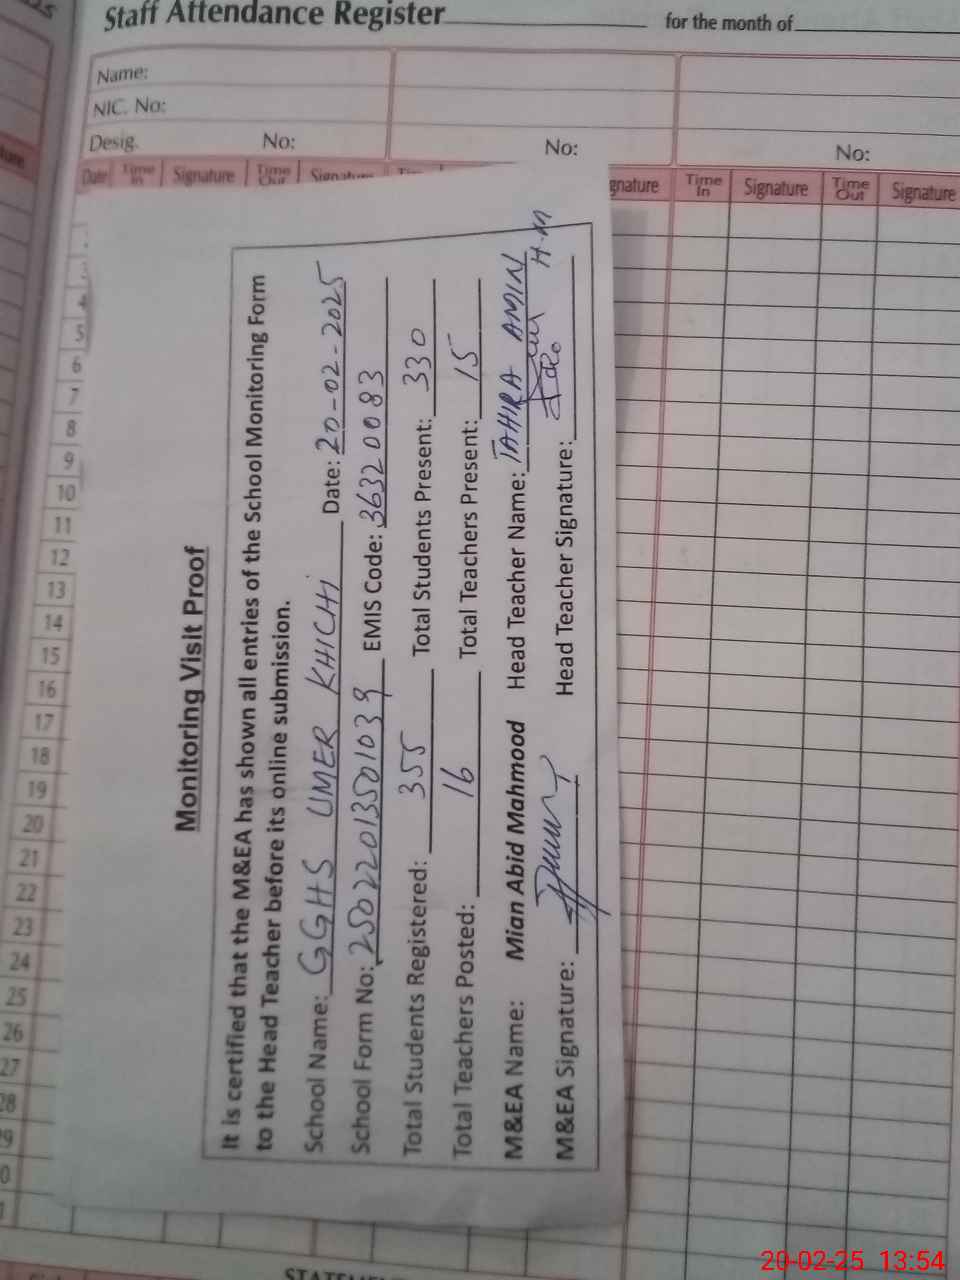 Staff Attendance Register for the month of
Name:
NIC. No:
Desig. No: No: No:
Date Time In Signature Time Out Signature Time gnature Time In Signature Time Out Signature
4
5
6
7
8
9
10
11
12
13
14
15
16
17
18
19
20
21
22
23
24
25
26
27
28
Monitoring Visit Proof
It is certified that the M&EA has shown all entries of the School Monitoring Form
to the Head Teacher before its online submission.
School Name: GGHS UMER KHICHI Date: 20-02-2025
School Form No: 25022013501039 EMIS Code: 36320083
Total Students Registered: 355 Total Students Present: 330
Total Teachers Posted: 16 Total Teachers Present: 15
M&EA Name: Mian Abid Mahmood Head Teacher Name: TAHIRA AMIN
M&EA Signature: Head Teacher Signature: H.M
20-02-25 13:54